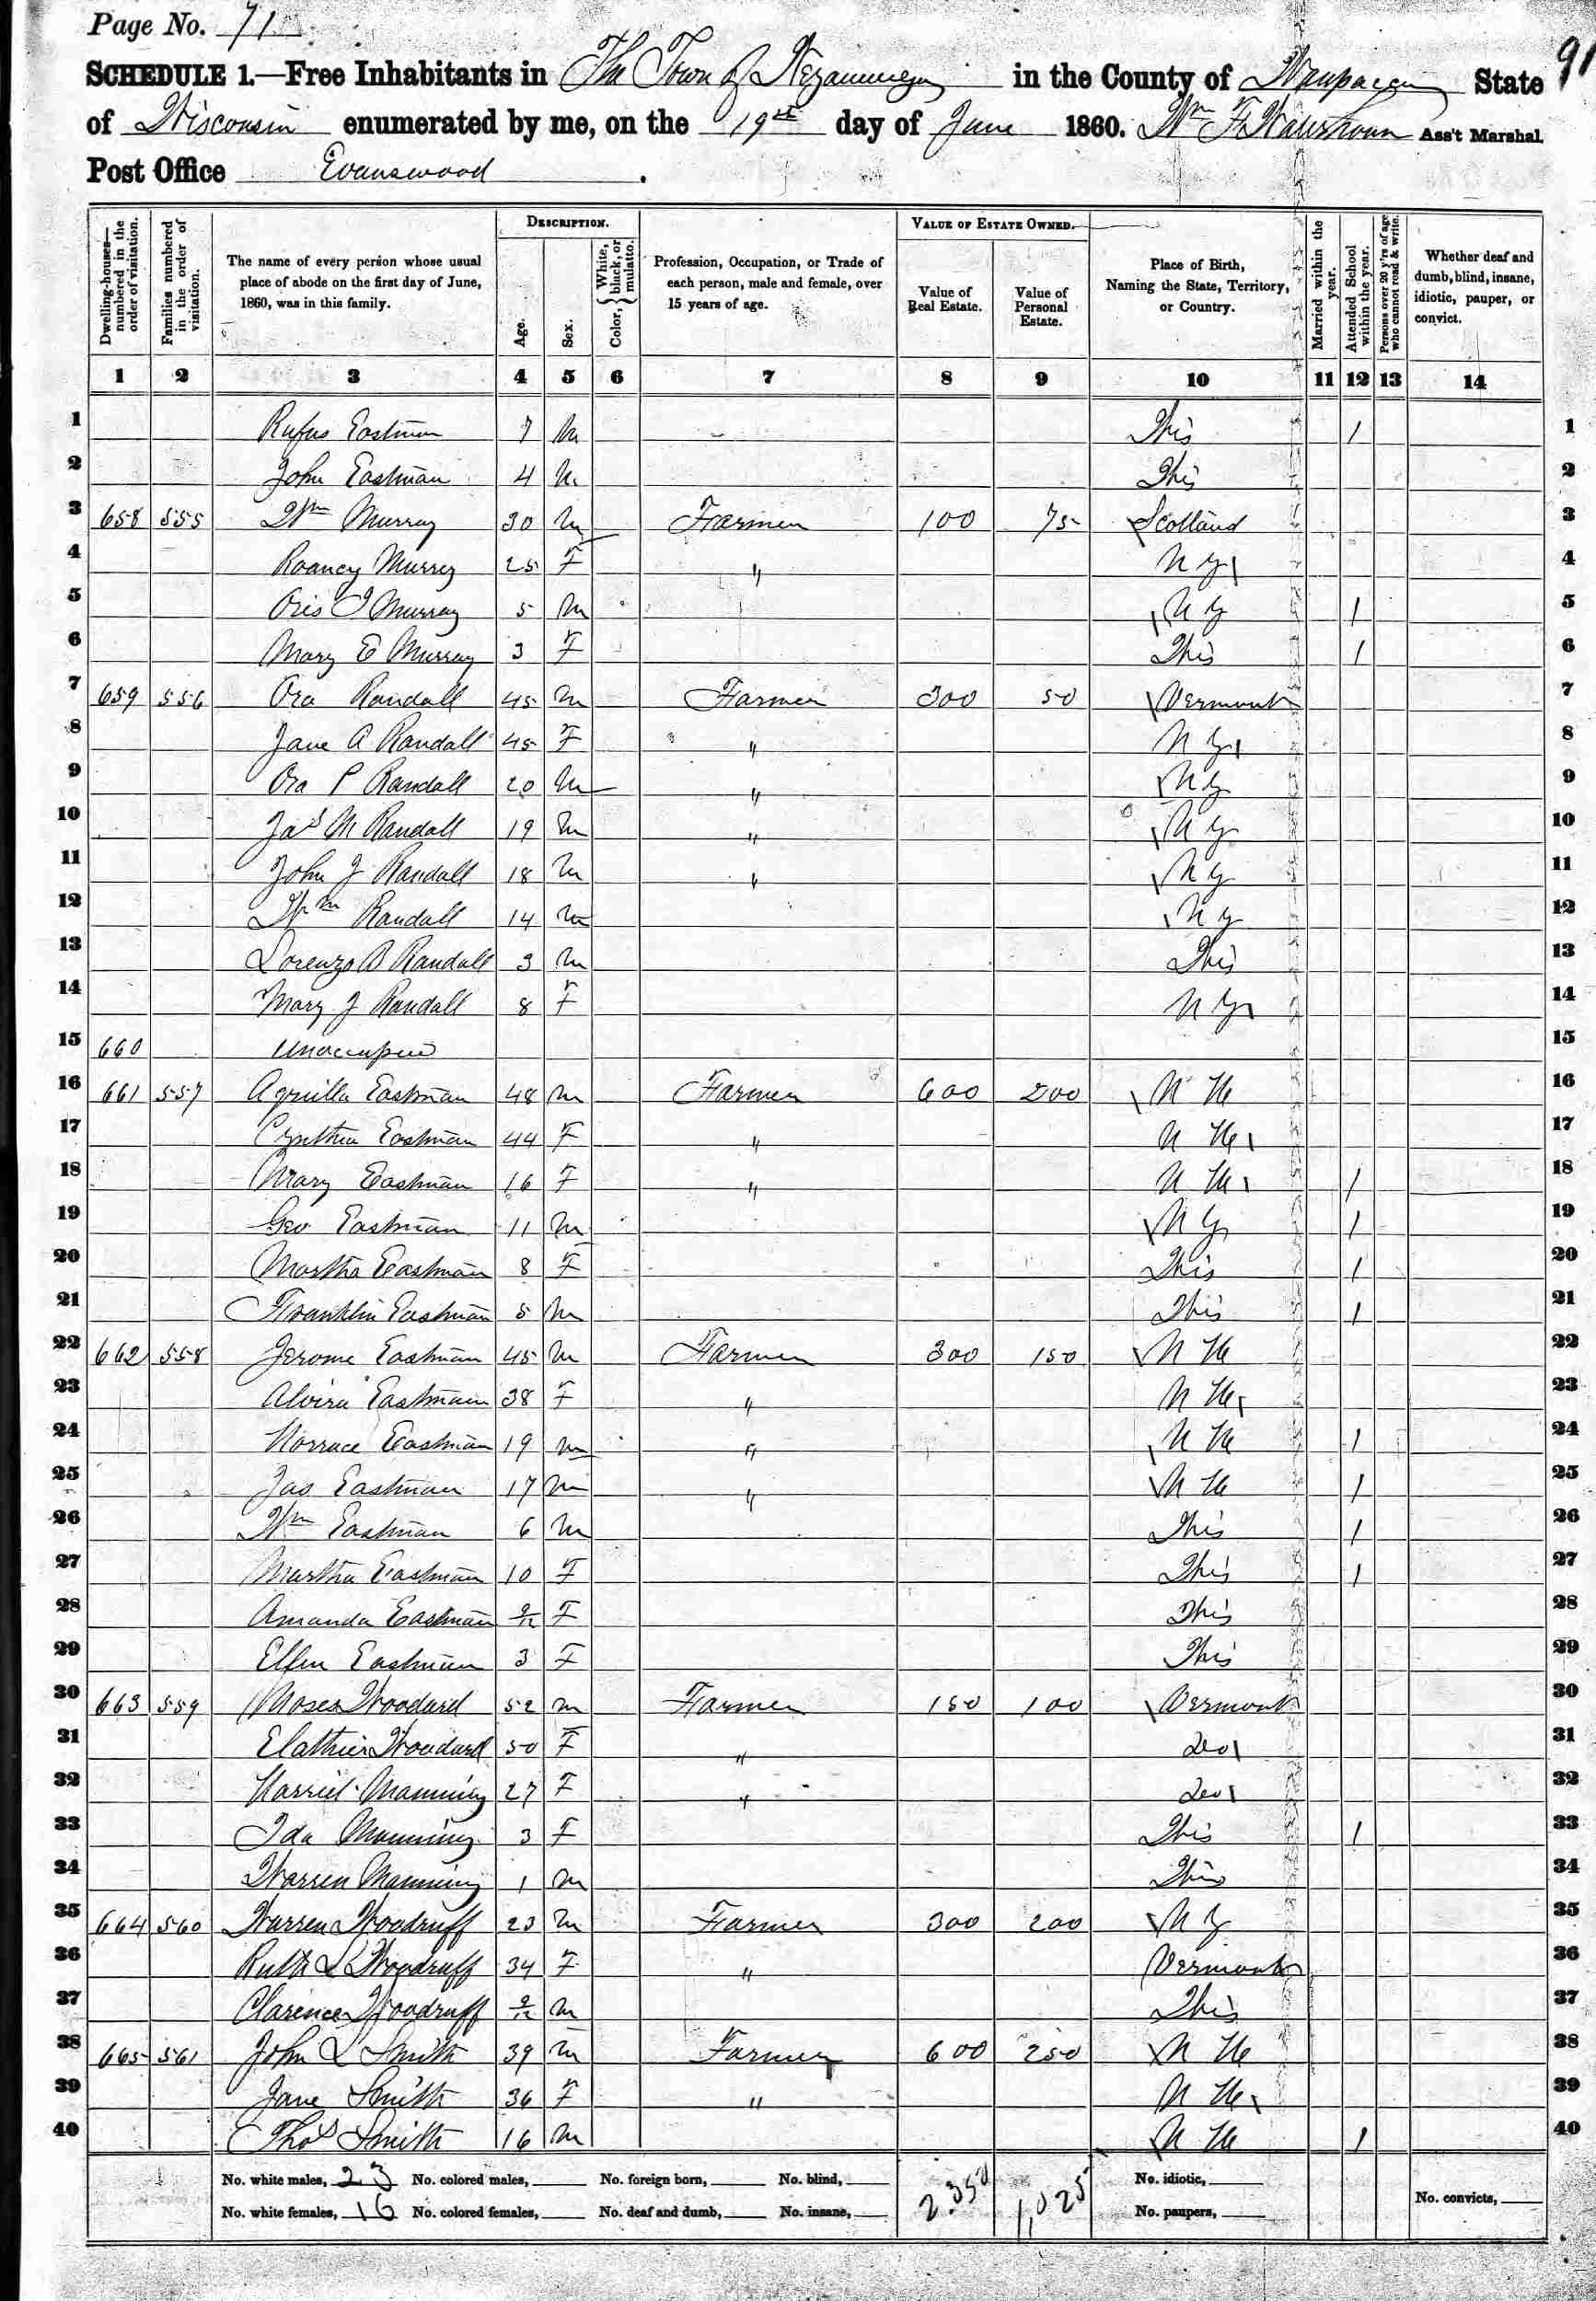 Page No. 71
91
SCHEDULE 1.—Free Inhabitants in The Town of in the County of Waupacca State
of Wisconsin enumerated by me, on the 19th day of June 1860. Wm F Ass't Marshal
Post Office Evanswood .
Dwelling-houses—numbered in the order of visitation. Families numbered in the order of visitation. The name of every person whose usual place of abode on the first day of June, 1860, was in this family. DESCRIPTION. Age. Sex. Color, { White, black, or mulatto. Profession, Occupation, or Trade of each person, male and female, over 15 years of age. VALUE OF ESTATE OWNED. Value of Real Estate. Value of Personal Estate. Place of Birth, Naming the State, Territory, or Country. Married within the year. Attended School within the year. Persons over 20 y'rs of age who cannot read & write. Whether deaf and dumb, blind, insane, idiotic, pauper, or convict.
1 2 3 4 5 6 7 8 9 10 11 12 13 14
1 Rufus Eastman 7 M This / 1
2 John Eastman 4 M This 2
3 658 555 Wm Murray 30 M Farmer 100 75 Scotland 3
4 Roancy Murray 25 F " N Y 4
5 Oris J Murray 5 M N Y / 5
6 Mary E Murray 3 F This / 6
7 659 556 Ora Randall 45 M Farmer 300 50 Vermont 7
8 Jane A Randall 45 F " N Y 8
9 Ora P Randall 20 M " N Y 9
10 Jas M Randall 19 M " N Y 10
11 John J Randall 18 M " N Y 11
12 Wm Randall 14 M N Y 12
13 Lorenzo B Randall 3 M This 13
14 Mary J Randall 8 F N Y 14
15 660 Unoccupied 15
16 661 557 Aquilla Eastman 48 M Farmer 600 200 N H 16
17 Cynthia Eastman 44 F " N H 17
18 Mary Eastman 16 F " N H / 18
19 Geo Eastman 11 M N Y / 19
20 Martha Eastman 8 F This / 20
21 Franklin Eastman 5 M This / 21
22 662 558 Jerome Eastman 45 M Farmer 300 150 N H 22
23 Alvira Eastman 38 F " N H 23
24 Horrace Eastman 19 M " N H / 24
25 Jas Eastman 17 M " N H / 25
26 Wm Eastman 6 M This / 26
27 Martha Eastman 10 F This / 27
28 Amanda Eastman 9/12 F This 28
29 Ellen Eastman 3 F This 29
30 663 559 Moses Woodard 52 M Farmer 150 100 Vermont 30
31 Woodard 50 F " Do 31
32 Harriet Manning 27 F " Do 32
33 Ida Manning 3 F This / 33
34 Warren Manning 1 M This 34
35 664 560 Warren Woodruff 23 M Farmer 300 200 N Y 35
36 Ruth L Woodruff 34 F " Vermont 36
37 Clarence Woodruff 9/12 M This 37
38 665 561 John L Smith 39 M Farmer 600 250 N H 38
39 Jane Smith 36 F " N H 39
40 Thos Smith 16 M N H / 40
No. white males, 23 No. colored males, No. foreign born, No. blind, 2.350 1,025 No. idiotic,
No. white females, 16 No. colored females, No. deaf and dumb, No. insane, No. paupers, No. convicts,